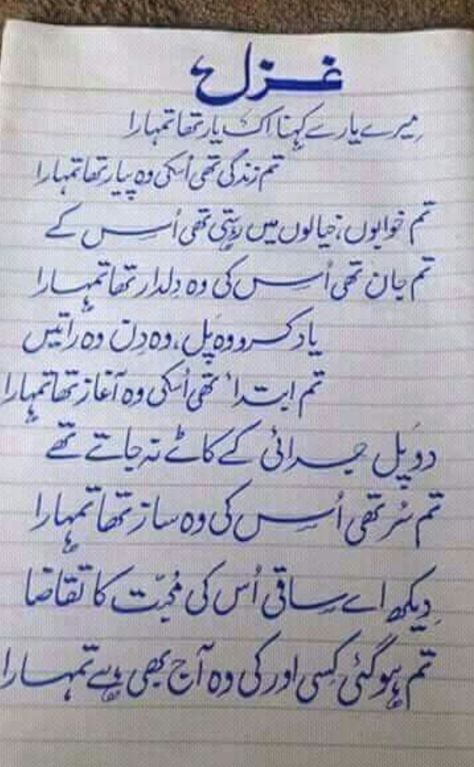 غزل
میرے یار سے کہنا اک یار تھا تمہارا
تم زندگی تھی اُسکی وہ پیار تھا تمہارا
تم خوابوں، خیالوں میں رہتی تھی اُس کے
تم جان تھی اُس کی وہ دِلدار تھا تمہارا
یاد کرو وہ پَل، وہ دِن وہ راتیں
تم ابتداء تھی اُسکی وہ آغاز تھا تمہارا
دو پَل جدائی کے کاٹے نہ جاتے تھے
تم سُر تھی اُس کی وہ ساز تھا تمہارا
دیکھ اے ساقی اُس کی مُحبّت کا تقاضا
تم ہو گئی کِسی اور کی وہ آج بھی ہے تمہارا